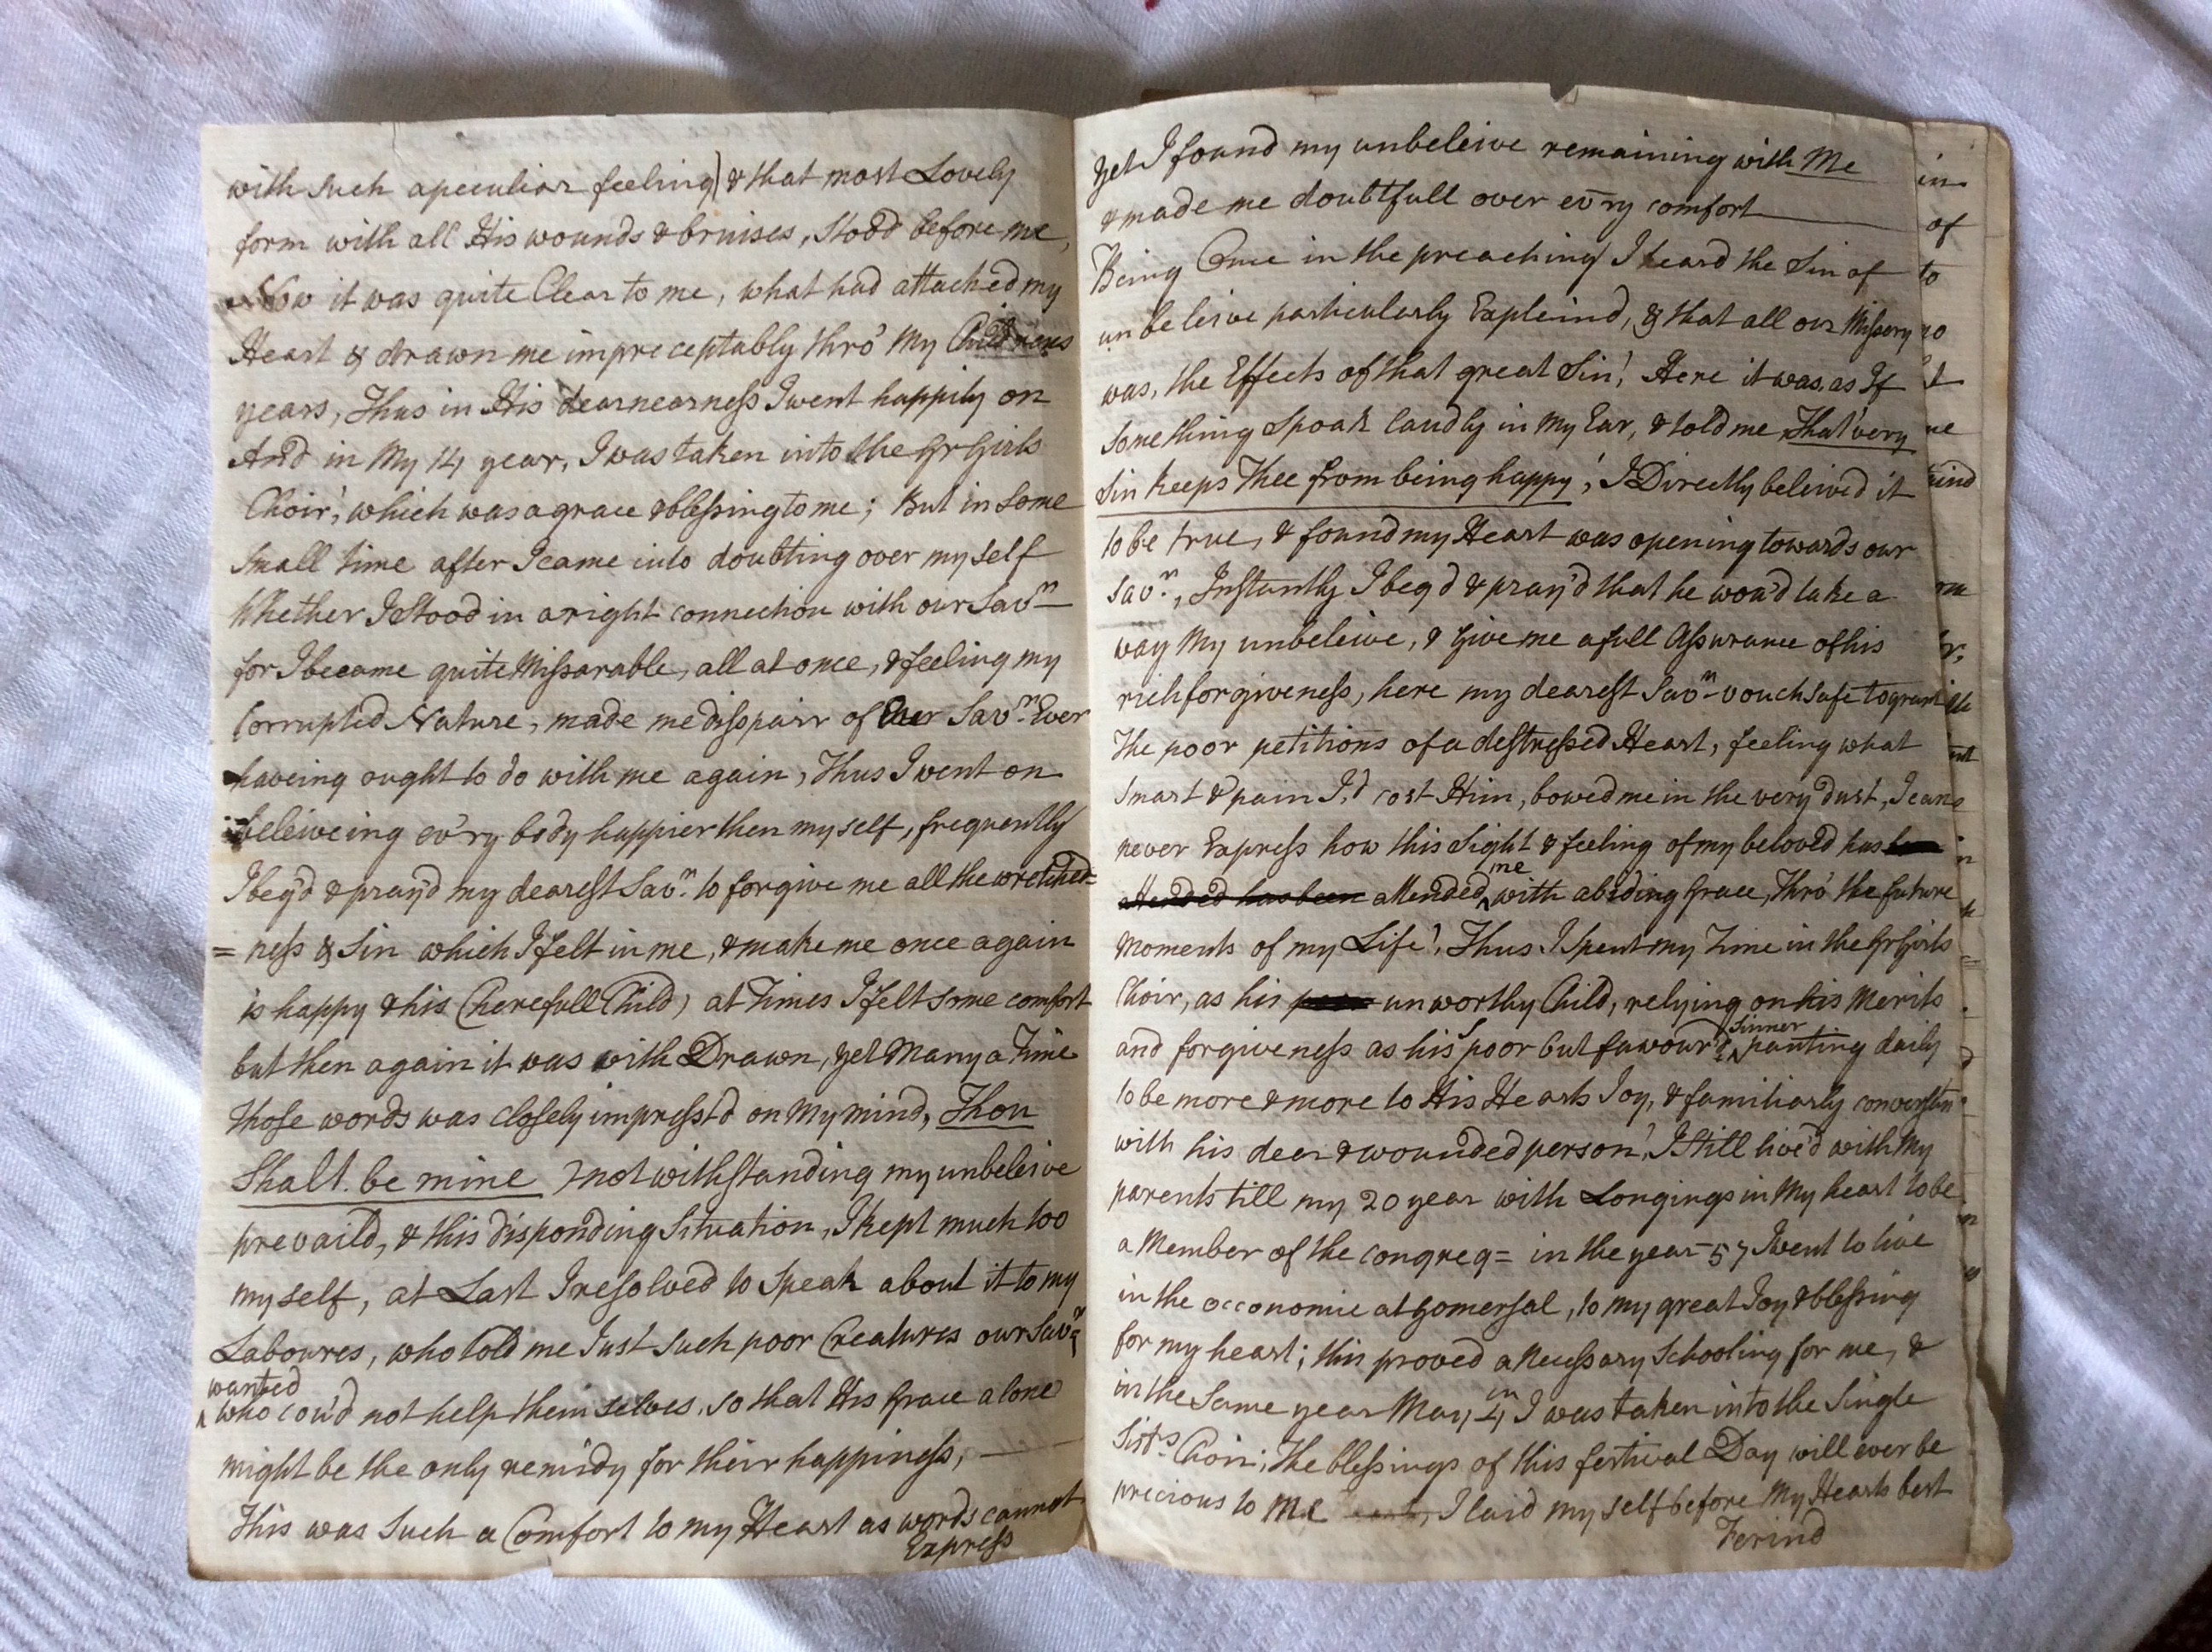 with such a peculiar feeling) & that most Lovely
form with all His wounds & bruises, stood before me,
Now it was quite Clear to me, what had attached my
Heart & drawn me impreceptably thro' My Childrens
years, Thus in His dearnearness I went happily on
And in My 14 year, I was taken into the Gr Girls
Choir, which was a grace & blessing to me; But in some
small time after I came into doubting over my self
Whether I stood in a right connection with our Savr
for I became quite Missarable, all at once, & feeling my
Corrupted Nature, made me disspair of Our Savr Ever
haveing ought to do with me again, Thus I went on
beleiveing ev'ry body happier then my self, frequently
I beg'd & pray'd my dearest Savr to forgive me all the wretched=
= ness & Sin which I felt in me, & make me once again
is happy & his Cherefull Child) at Times I felt some comfort
but then again it was with Drawn, yet Many a Time
those words was closely impress'd on My mind, Thou
Shalt be mine) notwithstanding my unbeleive
prevaild, & this disponding Situation, I kept much too
my self, at Last I resolved to speak about it to my
Laboures, who told me Just such poor Creatures our Savr
wanted
^ who cou'd not help them selves, so that His Grace alone
might be the only remidy for their happiness,
This was such a Comfort to my Heart as words cannot
Express
yet I found my unbeleive remaining with Me
& made me doubtfull over ev'ry comfort
Being Once in the preaching I heard the Sin of
unbeleive particularly Expleind, & that all our Missery
was, the Effects of that great Sin! Here it was, as If
something Spoak laudly in My Ear, & told me That very
Sin keeps Thee from being happy! I Directly beleived it
to be true, & found my Heart was opening towards our
Savr, Instantly I beg'd & pray'd that he wou'd take a
way My unbeleive, & Give me a full Assurance of his
rich forgiveness, here my dearest Savr vouch safe to grant
the poor petitions of a destressed Heart, feeling what
Smart & pain I'd cost Him, bowed me in the very dust, I can
never Express how this Sight & feeling of my beloved has
me
attended has been attended ^ with abiding Grace, Thro' the future
Moments of my Life! Thus I Spent my Time in the Gr Girls
Choir, as his unworthy Child, relying on his Merits
Sinner
and forgiveness as his poor but favour'd ^ panting daily
to be more & more to His Hearts Joy, & familiarly
with his dear & wounded person! I Still live'd with My
parents till my 20 year with Longings in My heart to be
a Member of the congreg= in the year 57 I went to live
in the occonomie at Gomersal, to my great Joy & blessing
for my heart; this proved a necessary Schooling for me, &
in the Same year May 4 I was taken into the Single
Sistrs Choir; The blessings of this festival Day will ever be
precious to Me, I laid my self before My Hearts best
Ferind
in
of
to